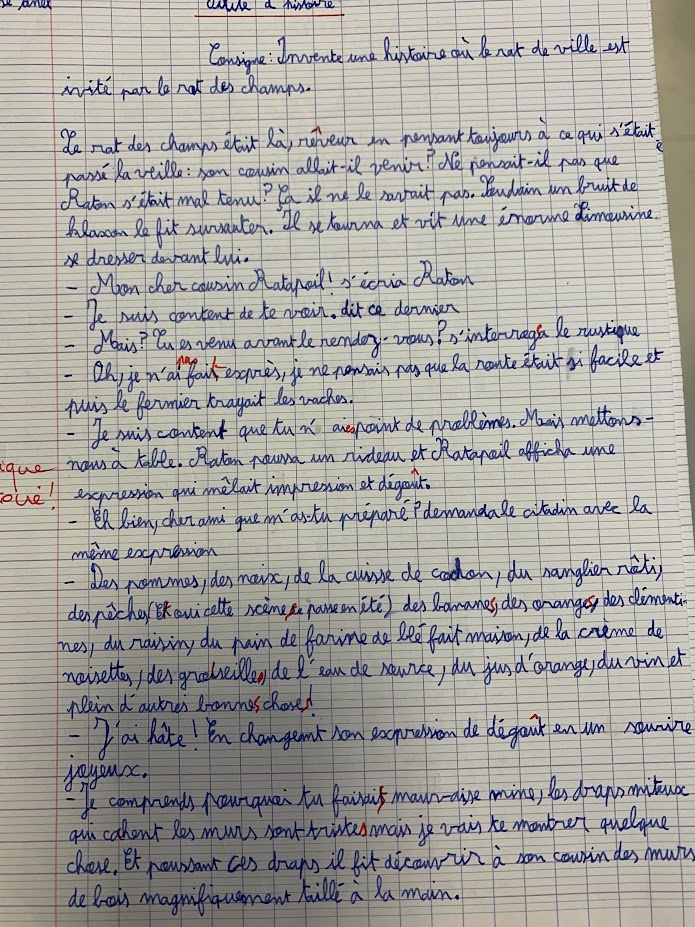 histoire
Consigne: Invente une histoire où le rat de ville est
invité par le rat des champs.
Le rat des champs était là, rêveur en pensant toujours à ce qui s'était
passé la veille: son cousin allait-il venir? Ne pensait-il pas que
Raton s'était mal tenu? Ça il ne le savait pas. Soudain un bruit de
klaxon le fit sursauter. Il se tourna et vit une énorme limousine
se dresser devant lui.
- Mon cher cousin Ratapoil! s'écria Raton
- Je suis content de te voir. dit ce dernier
- Mais? Tu es venu avant le rendez-vous? s'interrogea le rustique
- Oh, je n'ai pas fait exprès, je ne pensais pas que la route était si facile et
puis le fermier trayait les vaches.
- Je suis content que tu n'aies point de problèmes. Mais mettons-
nous à table. Raton poussa un rideau et Ratapoil afficha une
ique
oué!
expression qui mêlait impression et dégoût.
- Eh bien, cher ami que m'as-tu préparé? demanda le citadin avec la
même expression
- Des pommes, des noix, de la cuisse de cochon, du sanglier rôti,
des pêches, (Et oui cette scène se passe en été) des bananes, des oranges, des clémenti-
nes, du raisin, du pain de farine de blé fait maison, de la crème de
noisettes, des groseilles, de l'eau de source, du jus d'orange, du vin et
plein d'autres bonnes choses!
- J'ai hâte! En changeant son expression de dégoût en un sourire
joyeux.
- Je comprends pourquoi tu faisais mauvaise mine, les draps miteux
qui cahent les murs sont tristes mais je vais te montrer quelque
chose. Et poussant ces draps il fit découvrir à son cousin des murs
de bois magnifiquement taillé à la main.